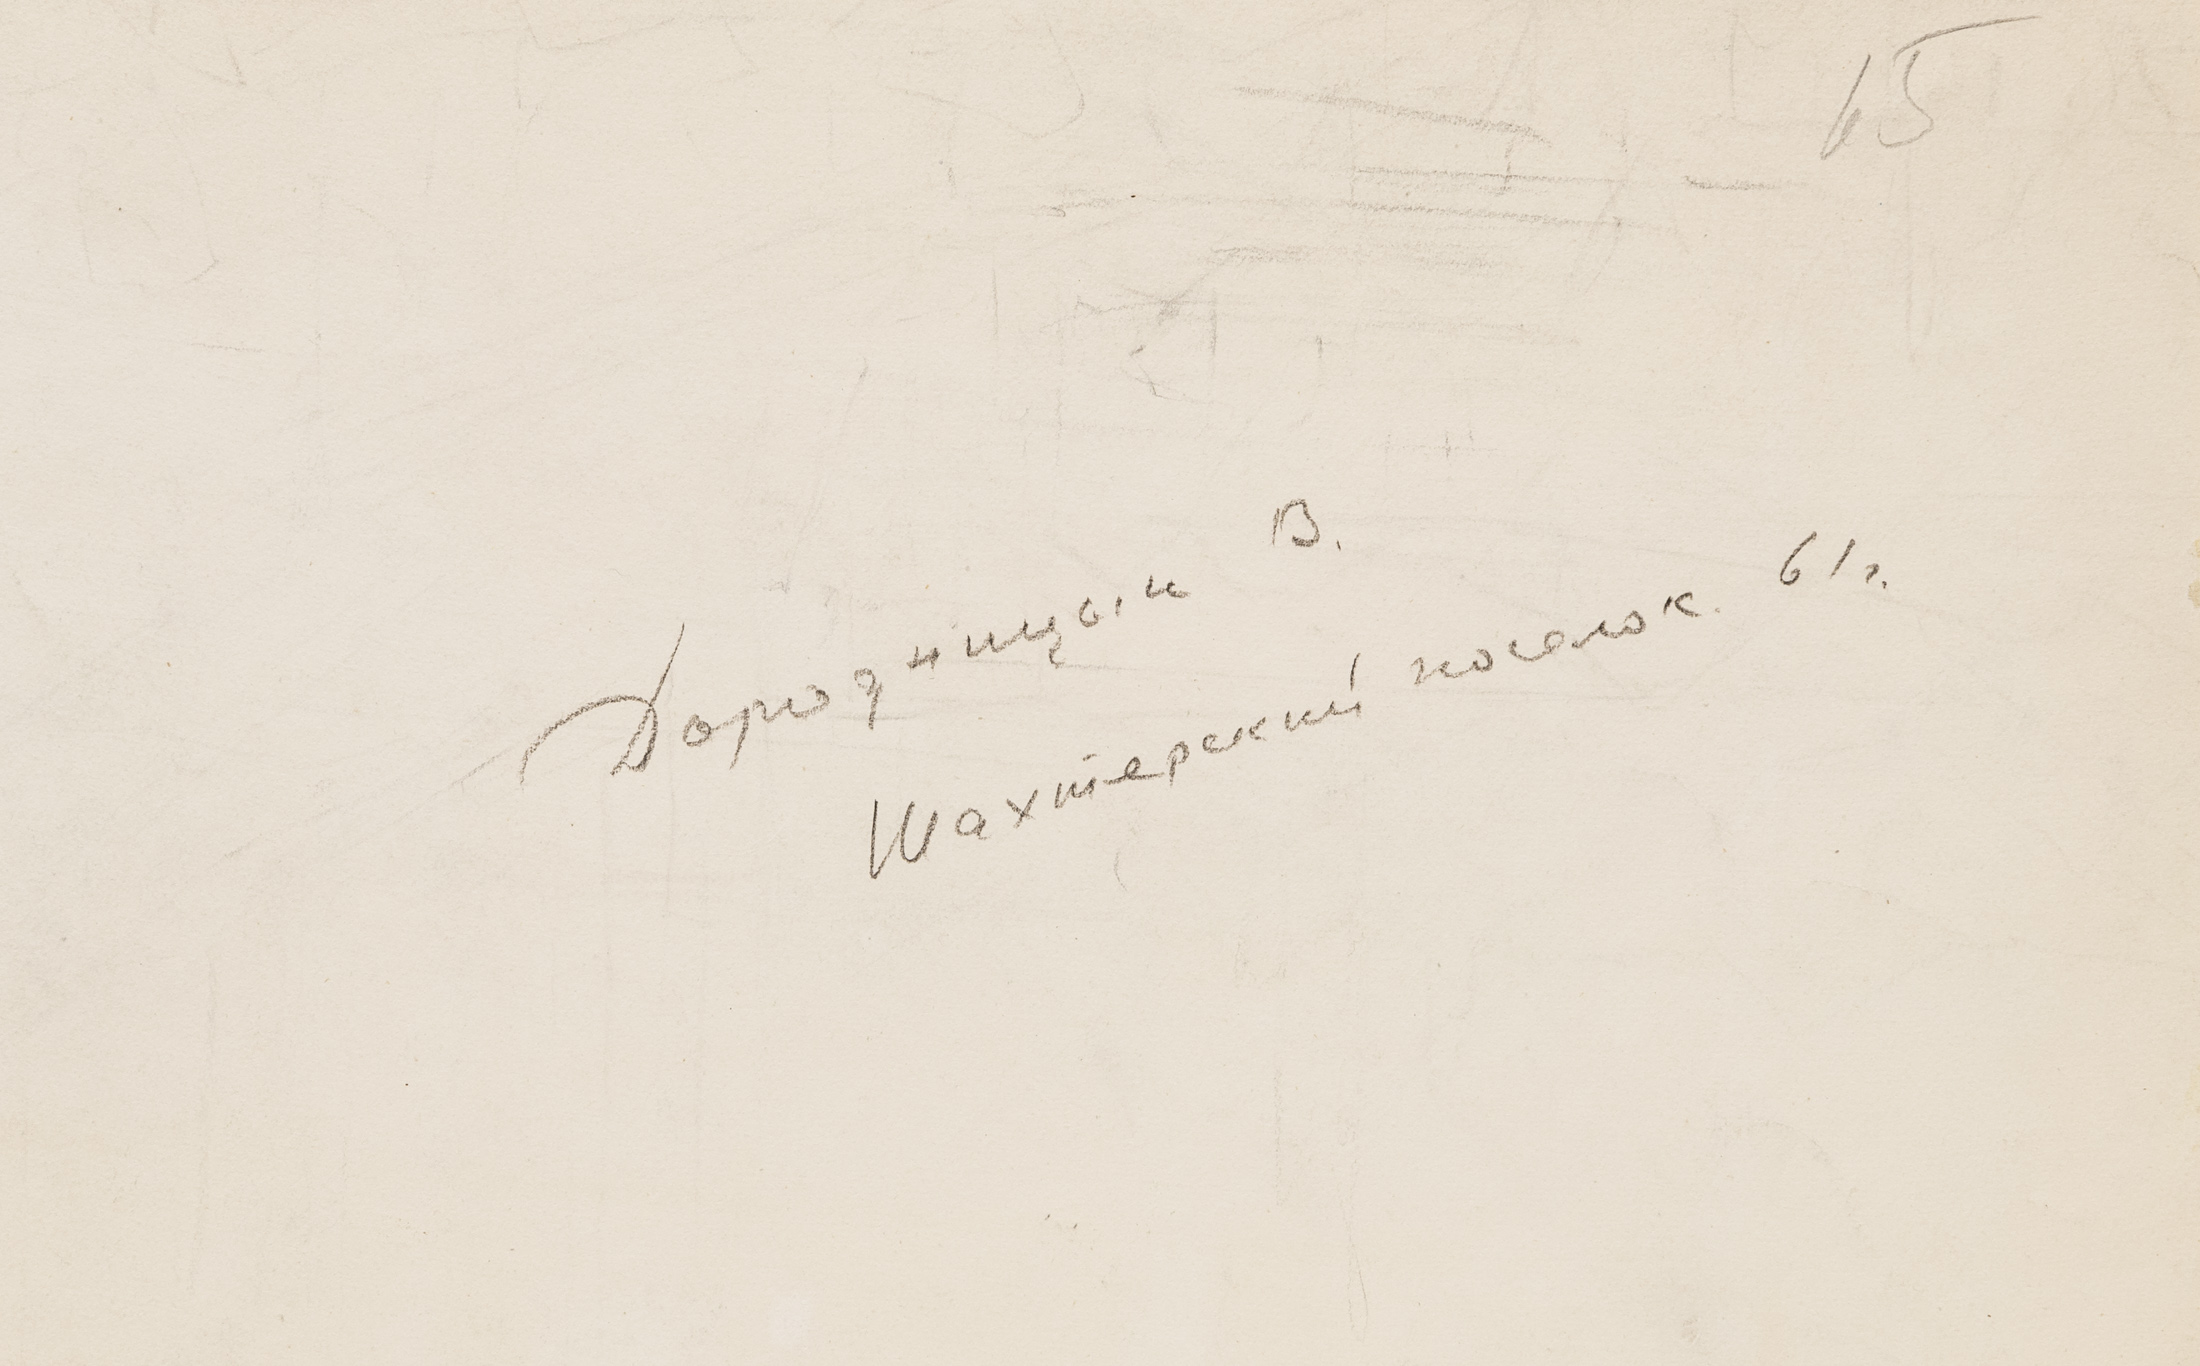 15
Дородницын В.
Шахтерский поселок. 61г.